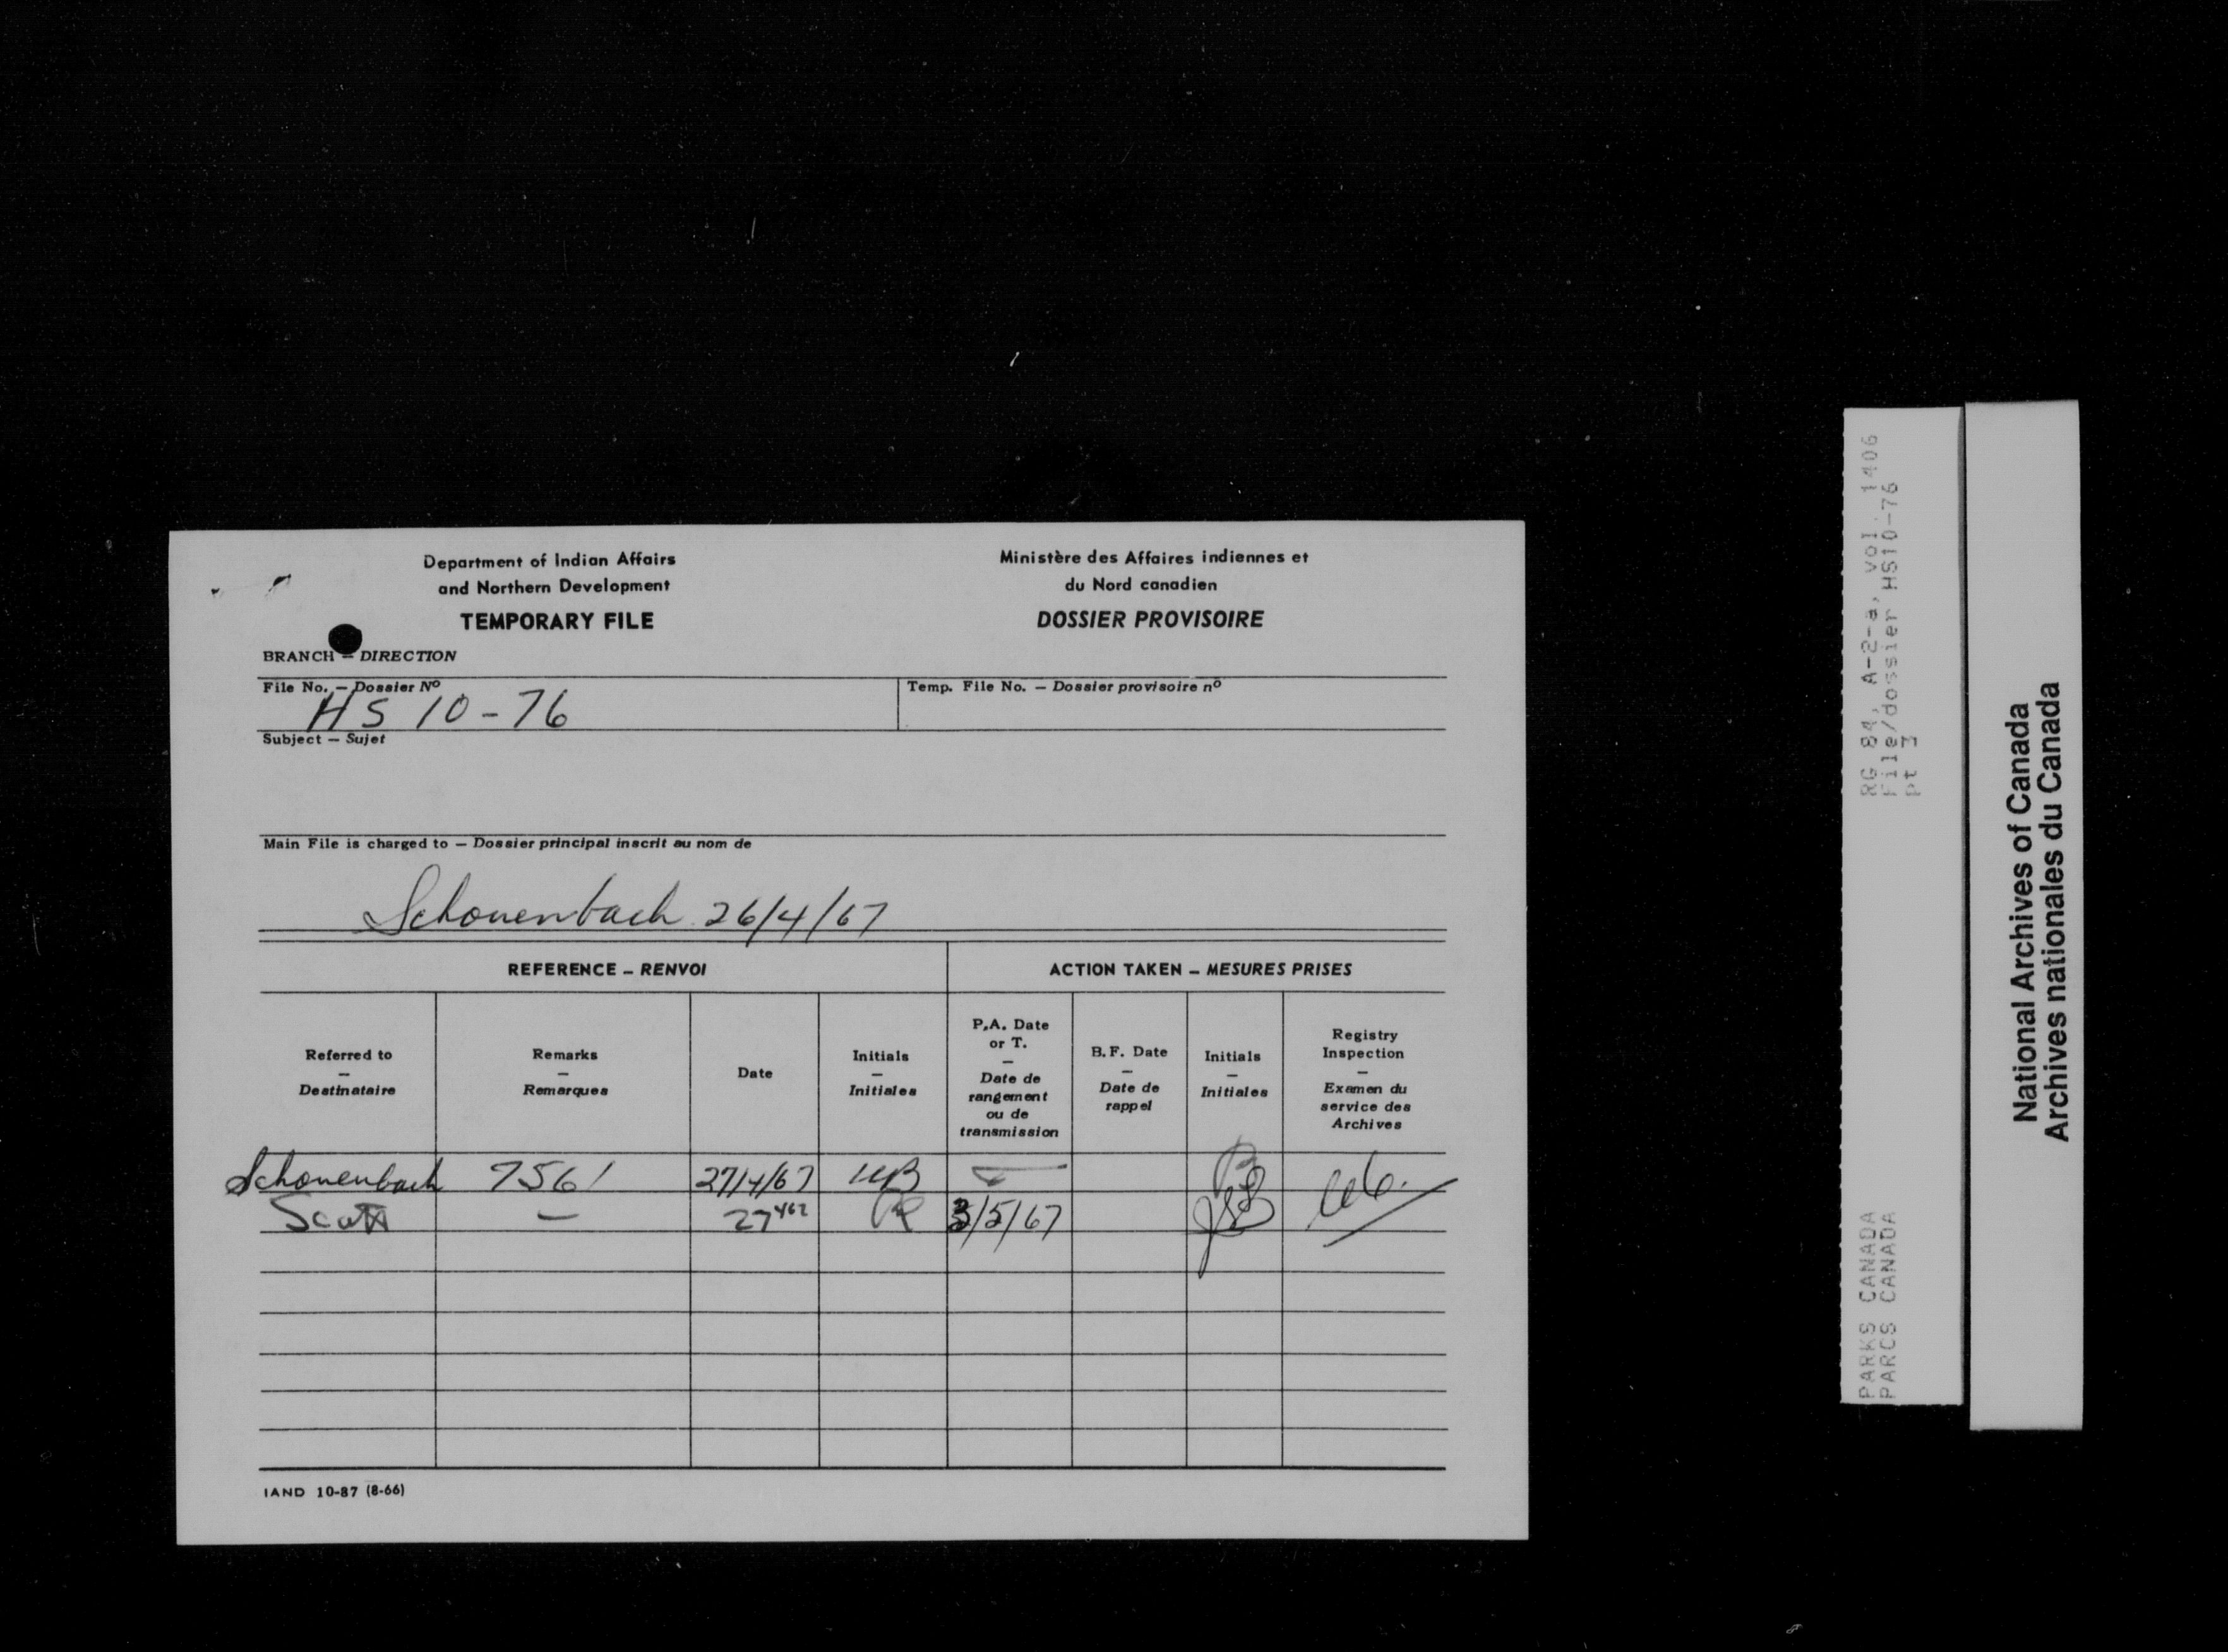 Department of Indian Affairs
and Northern Development
TEMPORARY FILE
Ministère des Affaires indiennes et
du Nord canadien
DOSSIER PROVISOIRE
BRANCH – DIRECTION
File No. – Dossier Nº
HS 10-76
Temp. File No. – Dossier provisoire nº
Subject – Sujet
Main File is charged to – Dossier principal inscrit au nom de
Schonenbach 26/4/67
REFERENCE – RENVOI
ACTION TAKEN – MESURES PRISES
Referred to
–
Destinataire
Remarks
–
Remarques
Date
Initials
–
Initiales
P.A. Date
or T.
–
Date de
rangement
ou de
transmission
B.F. Date
–
Date de
rappel
Initials
–
Initiales
Registry
Inspection
–
Examen du
service des
Archives
Schonenbach 7561 27/4/67
Scott – 27 4 67 3/5/67
IAND 10-87 (8-66)
RG 84, A-2-a, vol. 1406
File/dossier HS10-76
pt 3
PARKS CANADA
PARCS CANADA
National Archives of Canada
Archives nationales du Canada